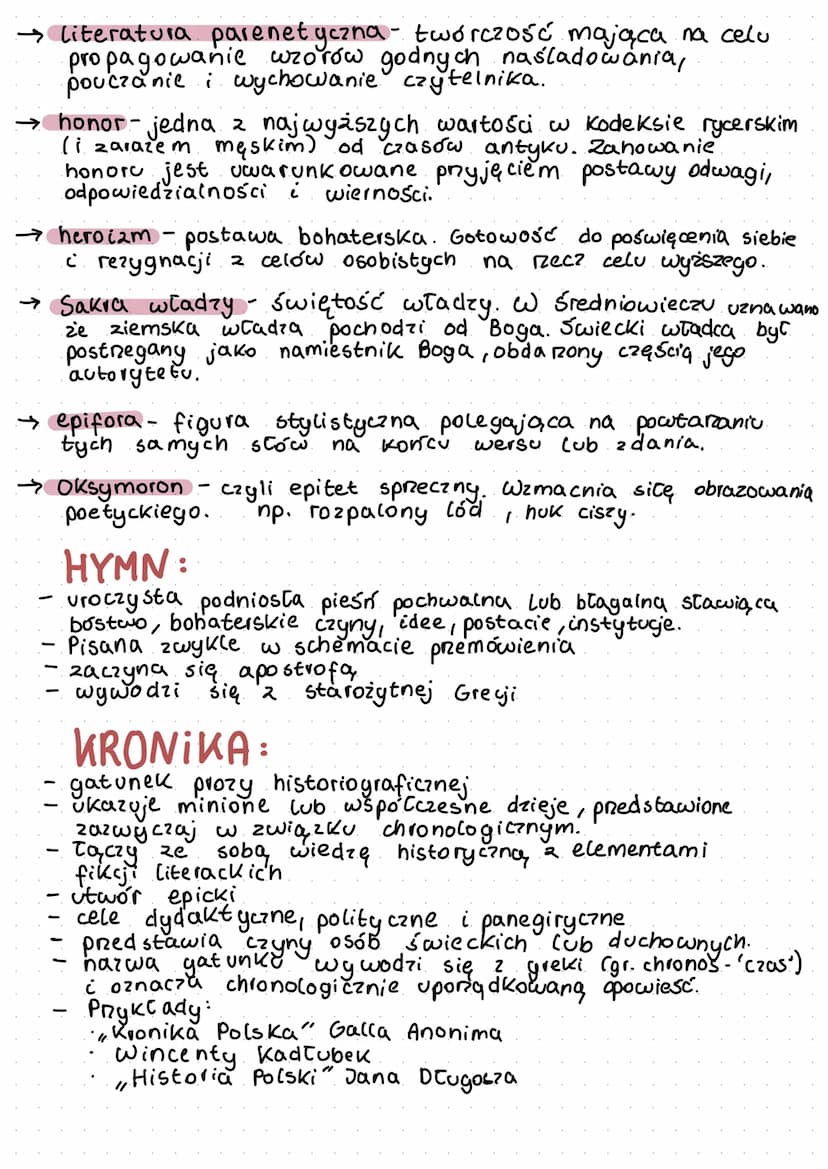 → literatura parenetyczna - twórczość mająca na celu
propagowanie wzorów godnych naśladowania,
pouczanie i wychowanie czytelnika.
→ honor - jedna z najwyższych wartości w kodeksie rycerskim
(i zarazem męskim) od czasów antyku. Zahowanie
honoru jest uwarunkowane przyjęciem postawy odwagi,
odpowiedzialności i wierności.
→ heroizm - postawa bohaterska. Gotowość do poświęcenia siebie
i rezygnacji z celów osobistych na rzecz celu wyższego.
→ Sakra władzy - świętość władzy. W Średniowieczu uznawano
że ziemska władza pochodzi od Boga. Świecki władca był
postrzegany jako namiestnik Boga, obdarzony częścią jego
autorytetu.
→ epifora - figura stylistyczna polegająca na powtarzaniu
tych samych słów na końcu wersu lub zdania.
→ Oksymoron - czyli epitet sprzeczny. Wzmacnia siłę obrazowania
poetyckiego. np. rozpalony lód, huk ciszy.
HYMN:
- uroczysta podniosła pieśń pochwalna lub błagalna sławiąca
bóstwo, bohaterskie czyny, idee, postacie, instytucje.
- Pisana zwykle w schemacie przemówienia
- zaczyna się apostrofą
- wywodzi się z starożytnej Grecji
KRONIKA:
- gatunek prozy historiograficznej
- ukazuje minione lub współczesne dzieje, przedstawione
zazwyczaj w związku chronologicznym.
- Łączy ze sobą wiedzę historyczną z elementami
fikcji literackich
- utwór epicki
- cele dydaktyczne, polityczne i panegiryczne
- przedstawia czyny osób świeckich lub duchownych.
- nazwa gatunku wywodzi się z greki (gr. chronos - 'czas')
i oznacza chronologicznie uporządkowaną opowieść.
- Przykłady:
· „Kronika Polska" Galla Anonima
· Wincenty Kadłubek
· „Historia Polski" Jana Długosza